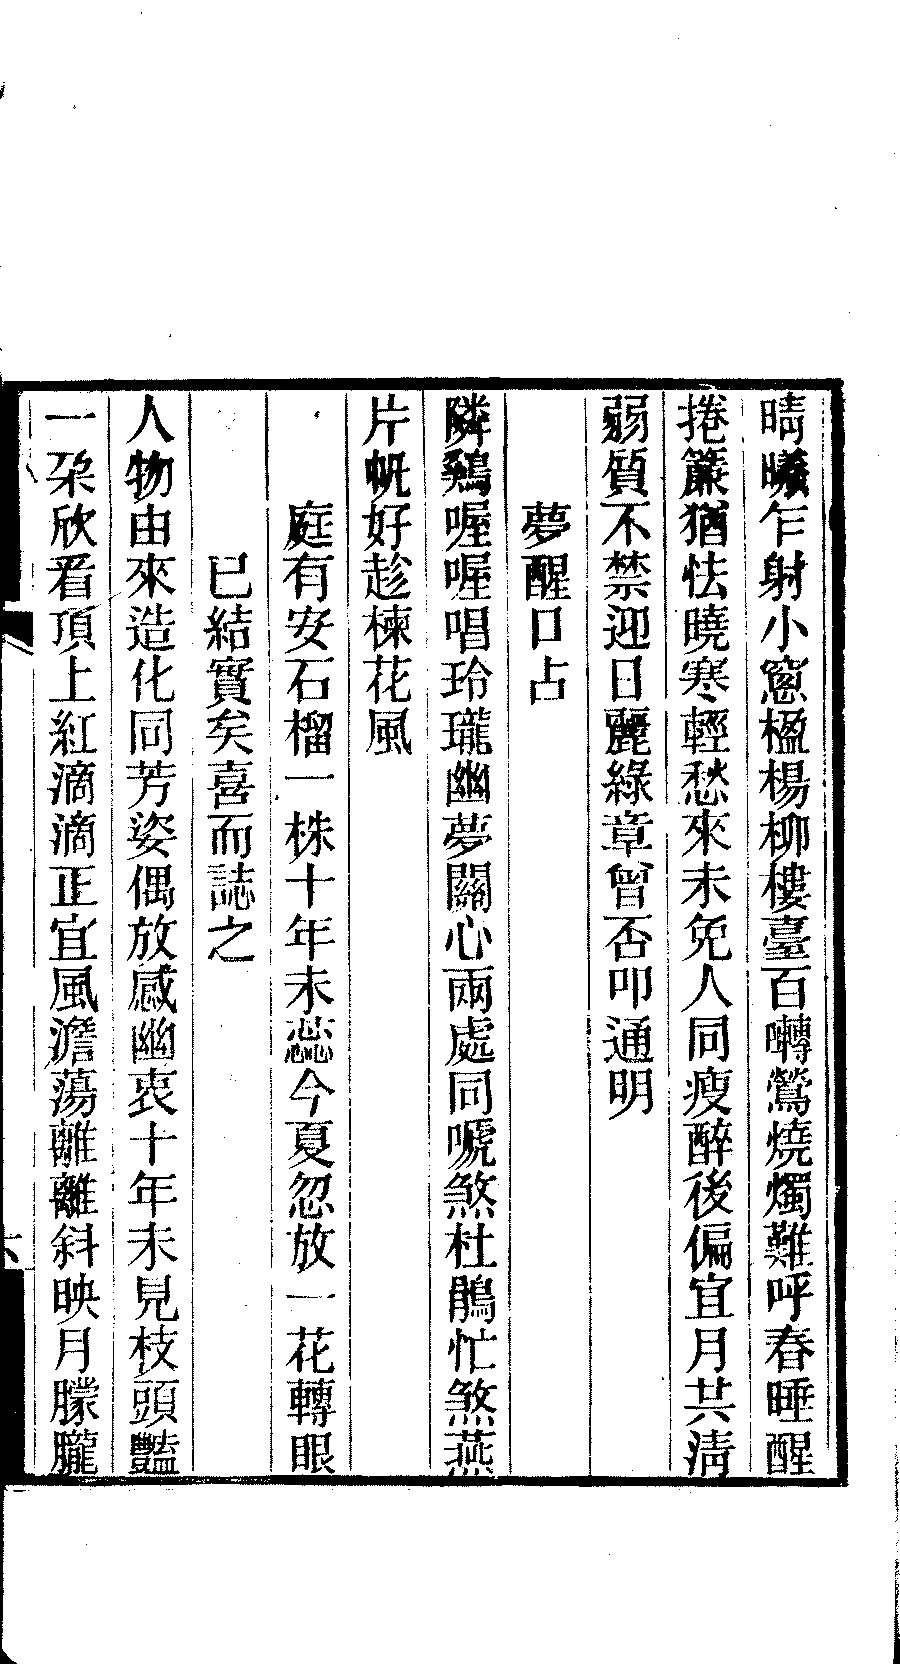 晴曦乍射小窻楹楊柳樓臺百囀鶯燒燭難呼春睡醒
捲簾猶怯曉寒輕愁來未免人同瘦醉後偏宜月共淸
弱質不禁迎日麗綠章曾否叩通明
夢醒口占
隣鷄喔喔唱玲瓏幽夢關心兩處同唬煞杜鵑忙煞燕
片帆好趁楝花風
庭有安石榴一株十年未蕊今夏忽放一花轉眼
已結實矣喜而誌之
人物由來造化同芳姿偶放感幽衷十年未見枝頭豔
一朶欣看頂上紅滴滴正宜風澹蕩離離斜映月朦朧
六